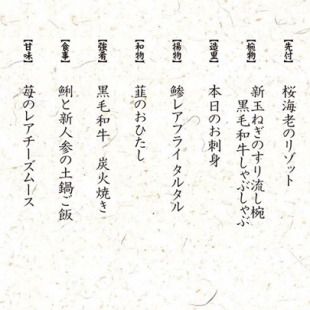 【先付】
桜海老のリゾット
【椀物】
新玉ねぎのすり流し椀
黒毛和牛しゃぶしゃぶ
【造里】
本日のお刺身
【揚物】
鯵レアフライタルタル
【和物】
韮のおひたし
【強肴】
黒毛和牛 炭火焼き
【食事】
鯏と新人参の土鍋ご飯
【甘味】
苺のレアチーズムース